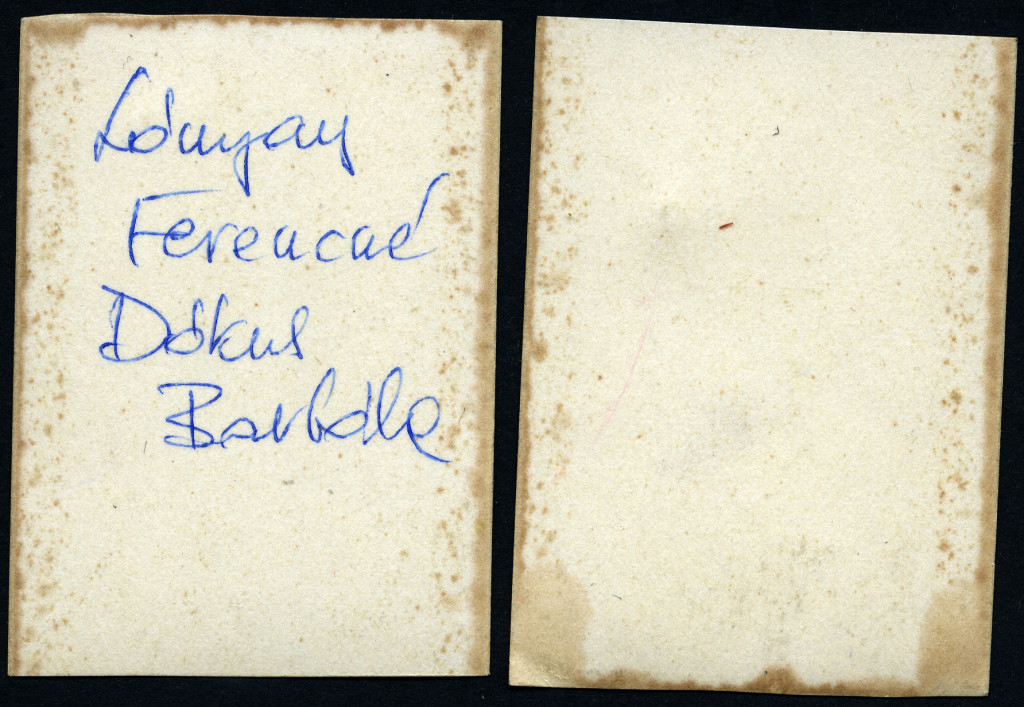 Lónyay
Ferencné
Dókus
Borbála